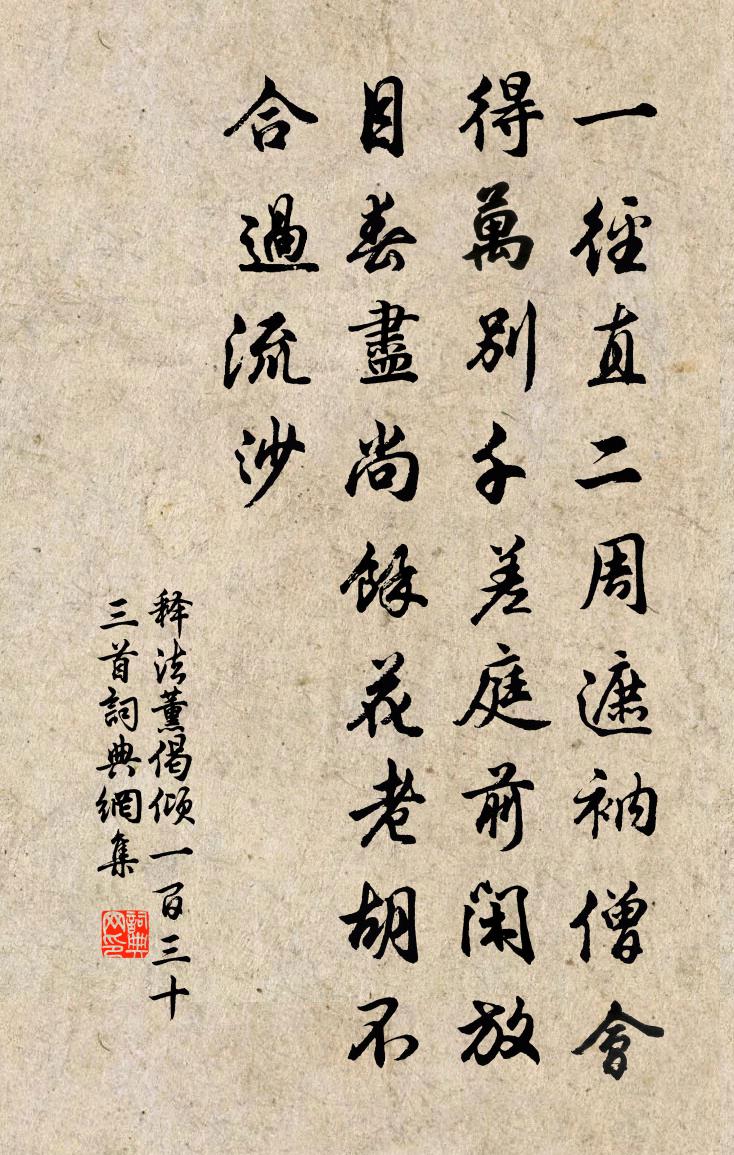 一徑直二周遮衲僧會
得萬別千差庭前閑放
目春盡尚餘花老胡不
合過流沙
释法薰偈傾一百三十
三首詞典網集
詞典网印